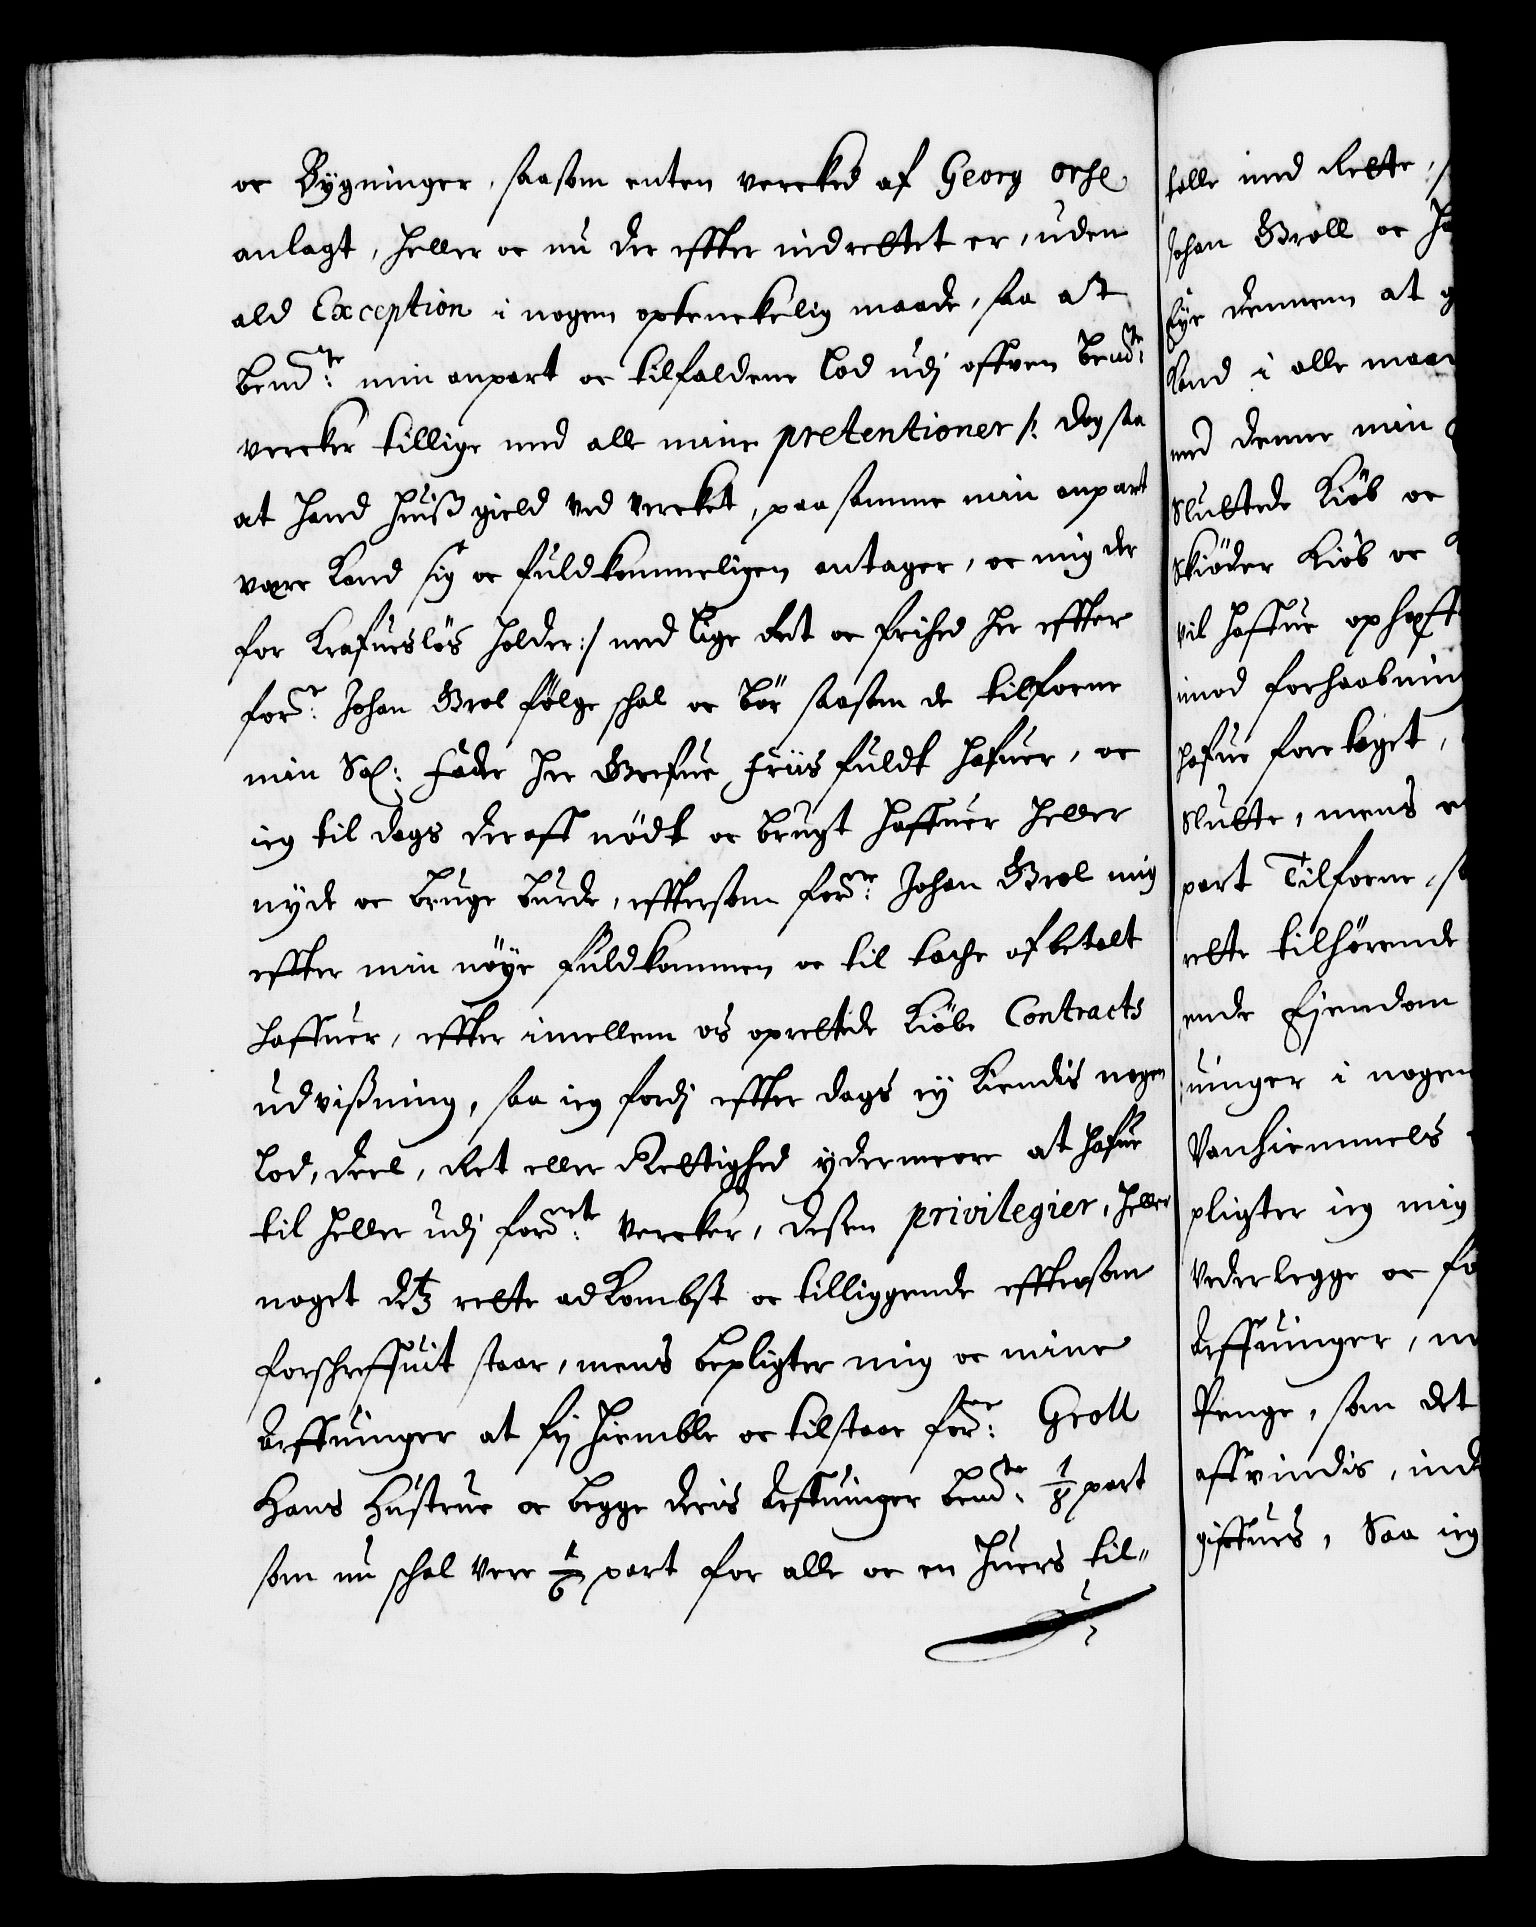 oc Bÿgninger, saasom enten vercked af Georg Orse
anlagt, heller oc nu der effter indrettet er, uden
ald Exception i nogen optenckelig maade, saa at
bemdte: min anpart oc tilfaldene Lod udj offven bemdte:
vercker tillige med alle mine pretentioner /: dog saa
at hand huiß gield ved vercket, paa samme min anpart
være kand sig oc fuldkommeligen antager, oc mig der
for krafuesløs holder :/ med lige Ret oc frihed her effter
forne: Johan Grol følge schal oc bør saasom de tilforne
min Sal: Fader Her Grefue Friis fuldt hafuer, oc
ieg til dags der aff nødt oc brugt haffuer heller
nyde oc bruge burde, efftersom forne: Johan Grol mig
effter min nöÿe fuldkommen oc til tacke afbetalt
haffuer, effter imellem os oprettede Kiöbe Contracts
udvißning, saa ieg fordj effter dags eÿ kiendis nogen
Lod, deel, Ret eller Rettighed ÿdermeere at hafue
til heller udj fornte: vercker, desen privilegier, heller
noget detz rette adkombst oc tilliggende efftersom
forschreffuit staar, mens bepligter mig oc mine
Arffuinger at frj hiemble oc tilstaae forne: Groll
Hans Hustrue oc begge deris Arffuinger bemdte: 1/8 part
som nu schal vere 1/6 part for alle oc en huers til-
talle med Rette,
Johan Groll oc
Eÿe dennem at
Kand i alle maa
med denne min
Sluttede Kiöb oc
Skiöder Kiöb oc
vil haffue ophaft
imod forhaabning
hafue foretaget,
Slutte, mens
part Tilforne,
rette tilhørende
ende Ejendom
uinger i nogen
Vanhiemmels
pligter ieg mig
Vederlegge oc
Arffuinger,
Penge, som det
affvindis, ind
gifftues, Saa ieg